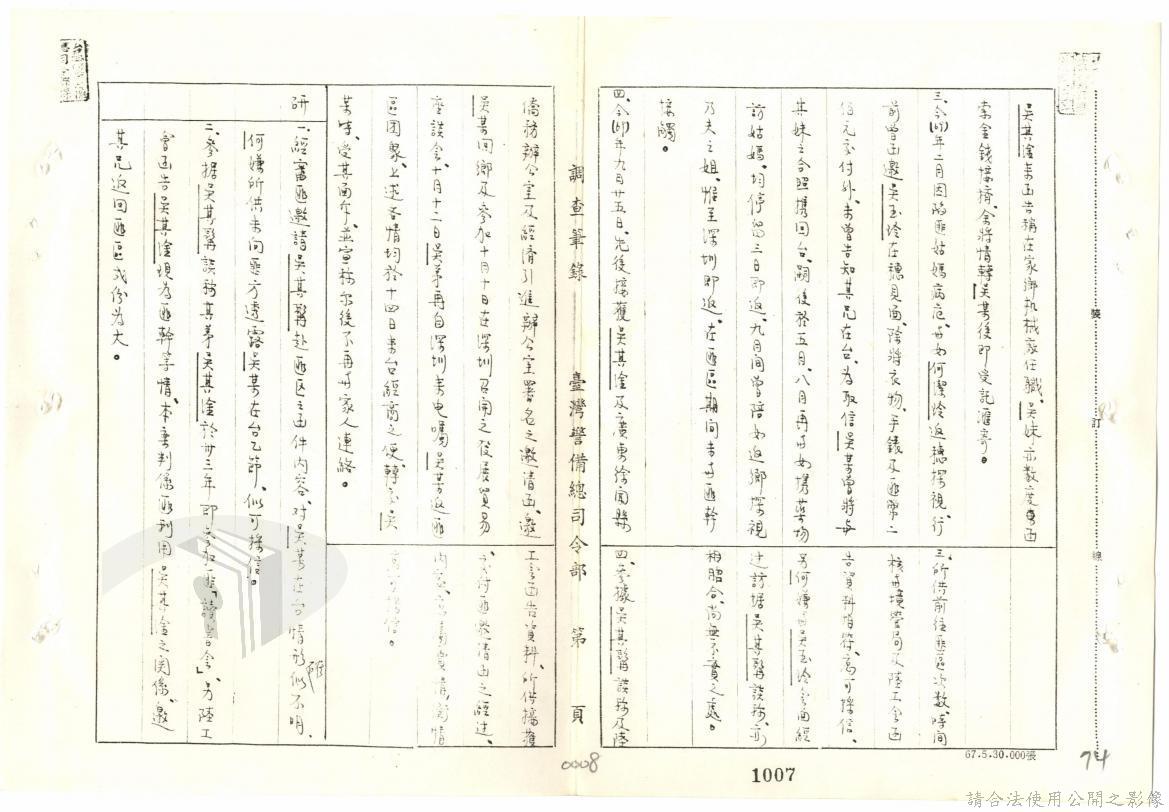 吳其淦來函告稱在家鄉机械廠任職、吳妹亦數度來函
索金錢接濟、余將情轉吳某後即受託滙寄。
三、今(67)年二月因陷匪姑媽病危、與女何潔玲返穗探視、行
前曾函邀吳玉玲在穗見面、除將衣物、手錶及匪幣二
佰元交付外、未曾告知其兄在台、為取信吳某曾將與
其妹之合照携回台。嗣後於五月、八月再與女携藥物
訪姑媽、均停留三日即返。九月間曾陪女返鄉探視
乃夫之姐、惟至深圳即返。在匪區期間未與匪幹
接觸。
四、今(67)年九月廿五日、先後接獲吳其淦及廣東徐聞縣
三、所供前往匪區次數、時間
核與境管局及陸工會函
告資料相符、尚可採信。
另何嫌與吳玉玲會面經
過訪據吳其賢談稱、亦
相脗合、尚無不實之處。
四、參據吳其賢談稱及陸
調查筆錄 臺灣警備總司令部 第 頁
僑務辦公室及經濟引進辦公室署名之邀請函、邀
吳某回鄉及參加十月十日在深圳召開之發展貿易
座談會、十月十二日吳弟再自深圳來电囑吳某返匪
區團聚、上述各情均於十四日來台經商之便、轉予吳
某時、受其面斥、並宣稱爾後不再與家人連絡。
工會函告資料、所供接獲
交付匪邀請函之經過、
內容、與事實情
尚可採信。
研
一、經審匪邀請吳其賢赴匪区之函件內容、對吳某在台情形似不明、
何嫌所供未向匪方透露吳某在台乙節、似可採信。
二、參据吳其賢談稱其弟吳其淦於卅三年即參加匪「讀書會」、另陸工
會函告吳其淦現為匪幹等情、本案判係匪利用吳其淦之関係、邀
其兄返回匪區成份為大。
裝 訂 線
67.5.30.000張
74
0008
1007
請合法使用公開之影像